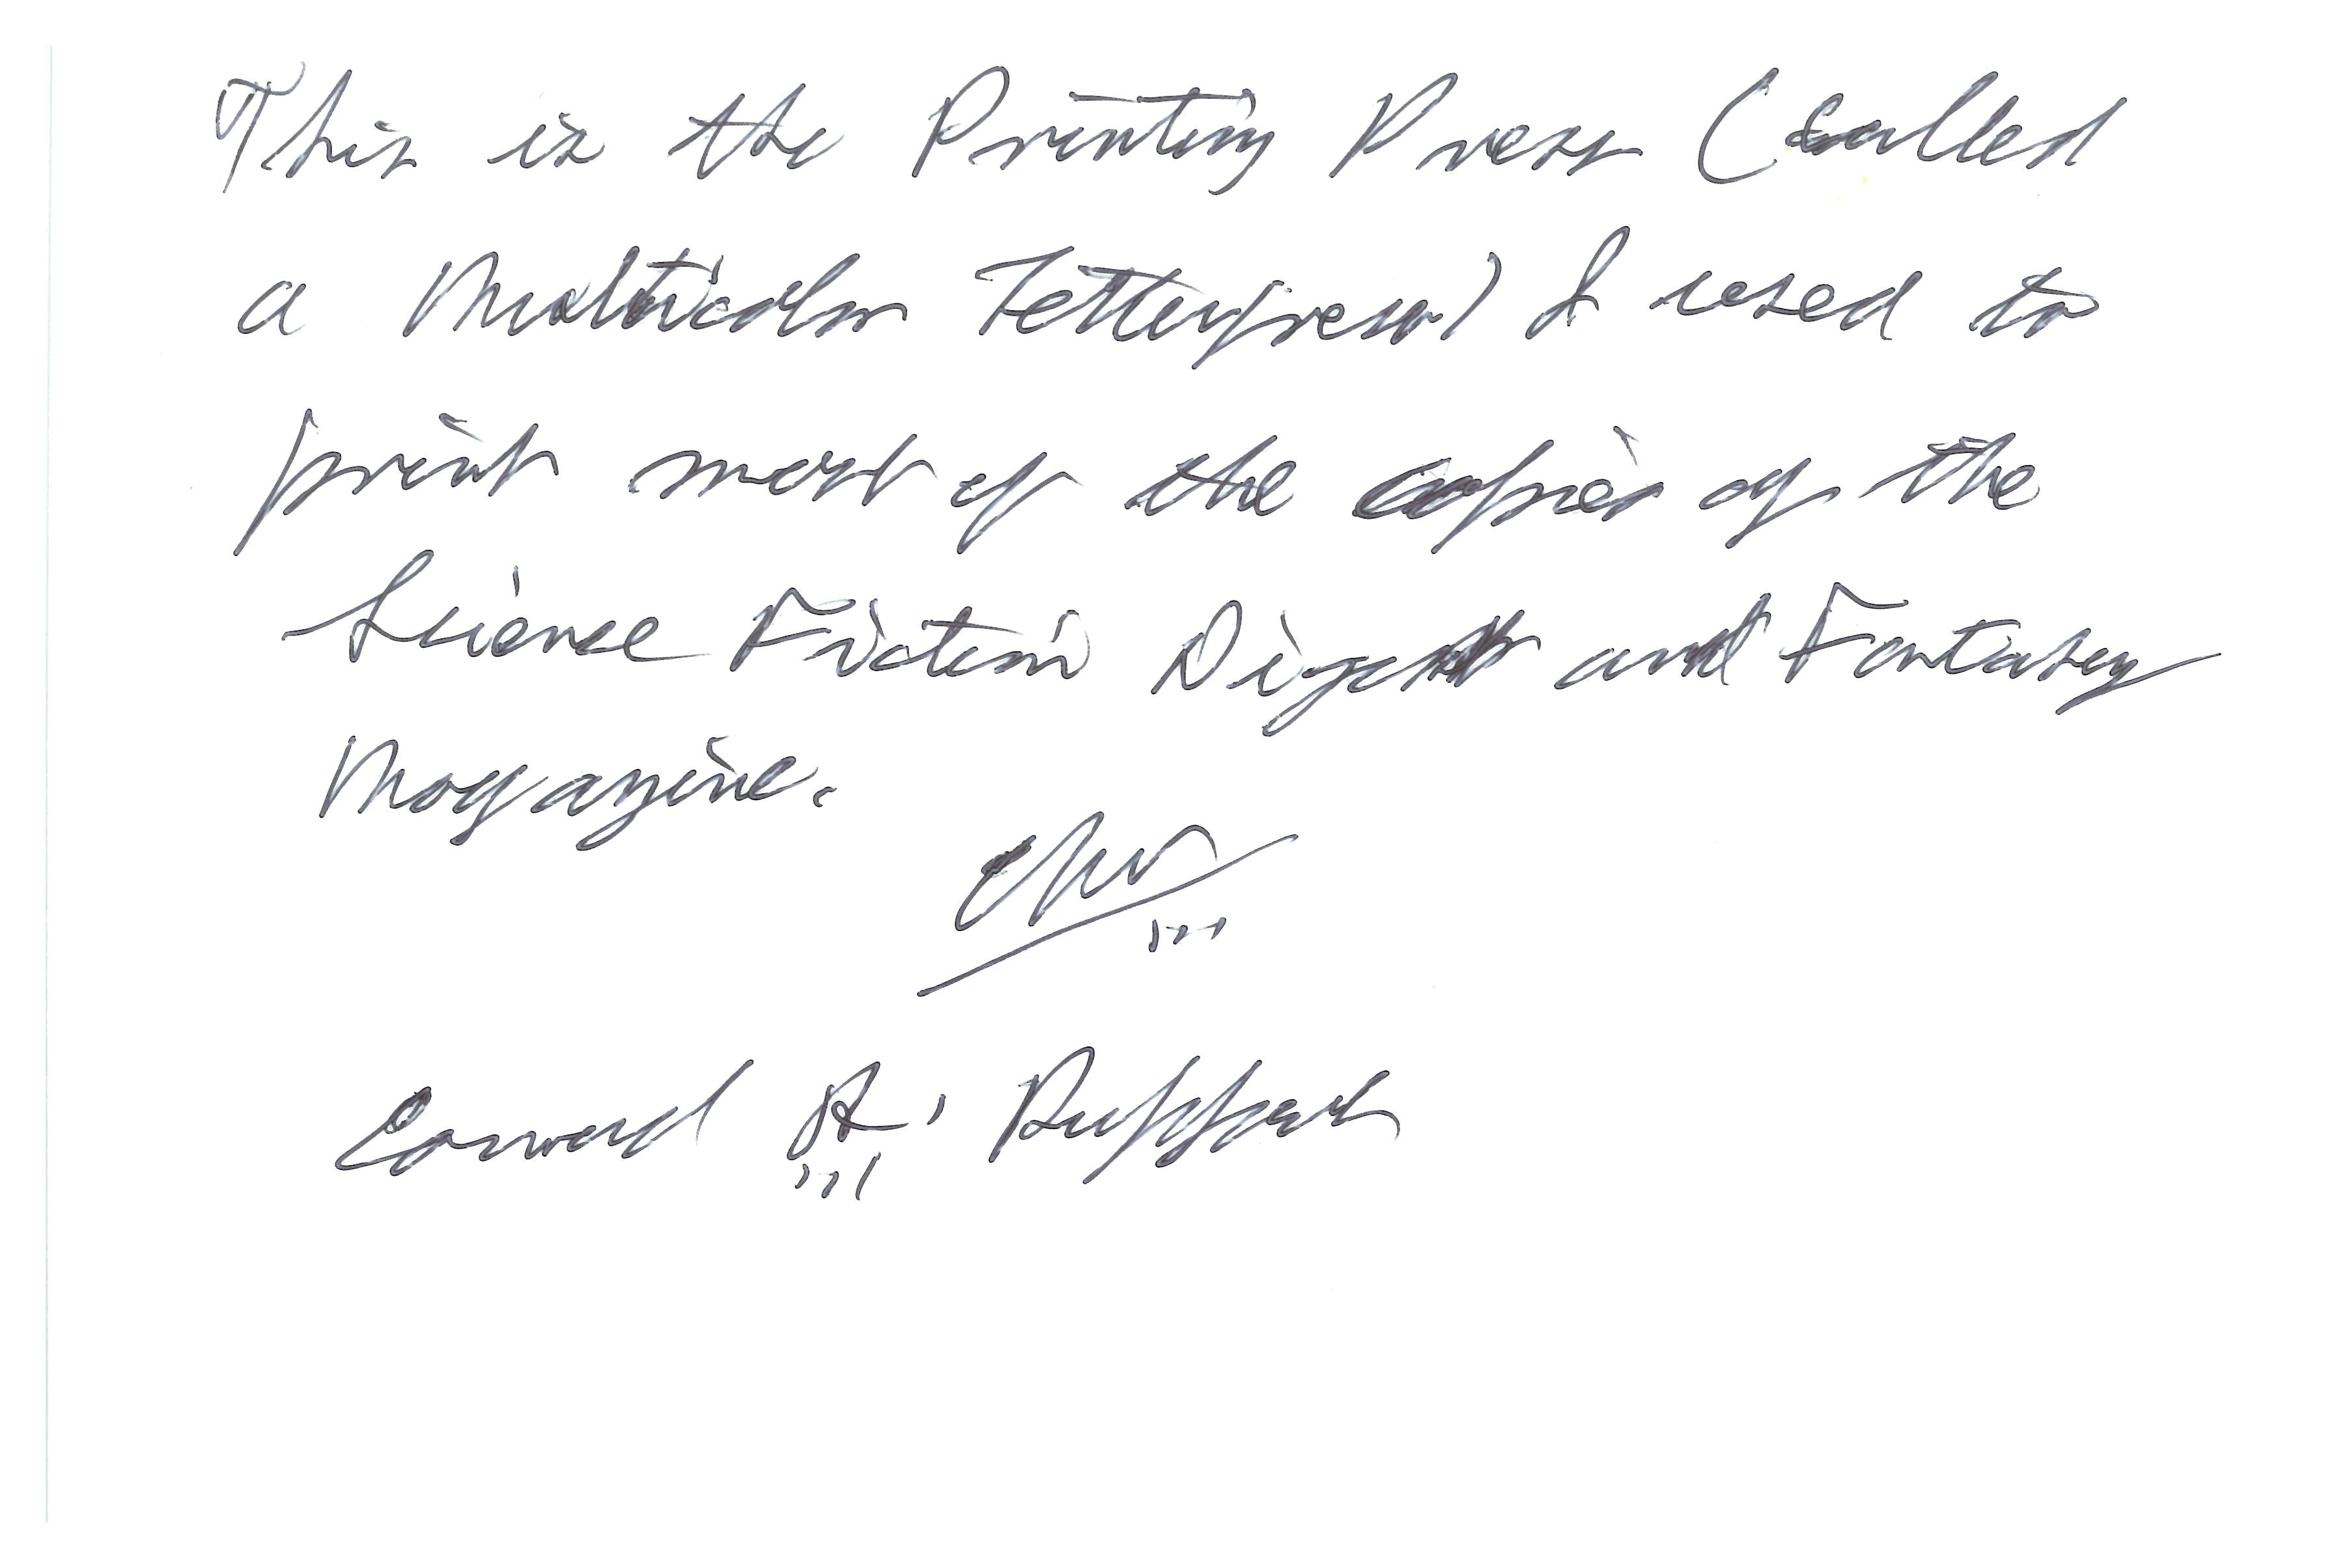 This is the Printing Press (called
a Multicolor Letterpress) I used to
print most of the copies of the
Science Fiction Digest and Fantasy
Magazine.
CRR
Conrad H. Ruppert